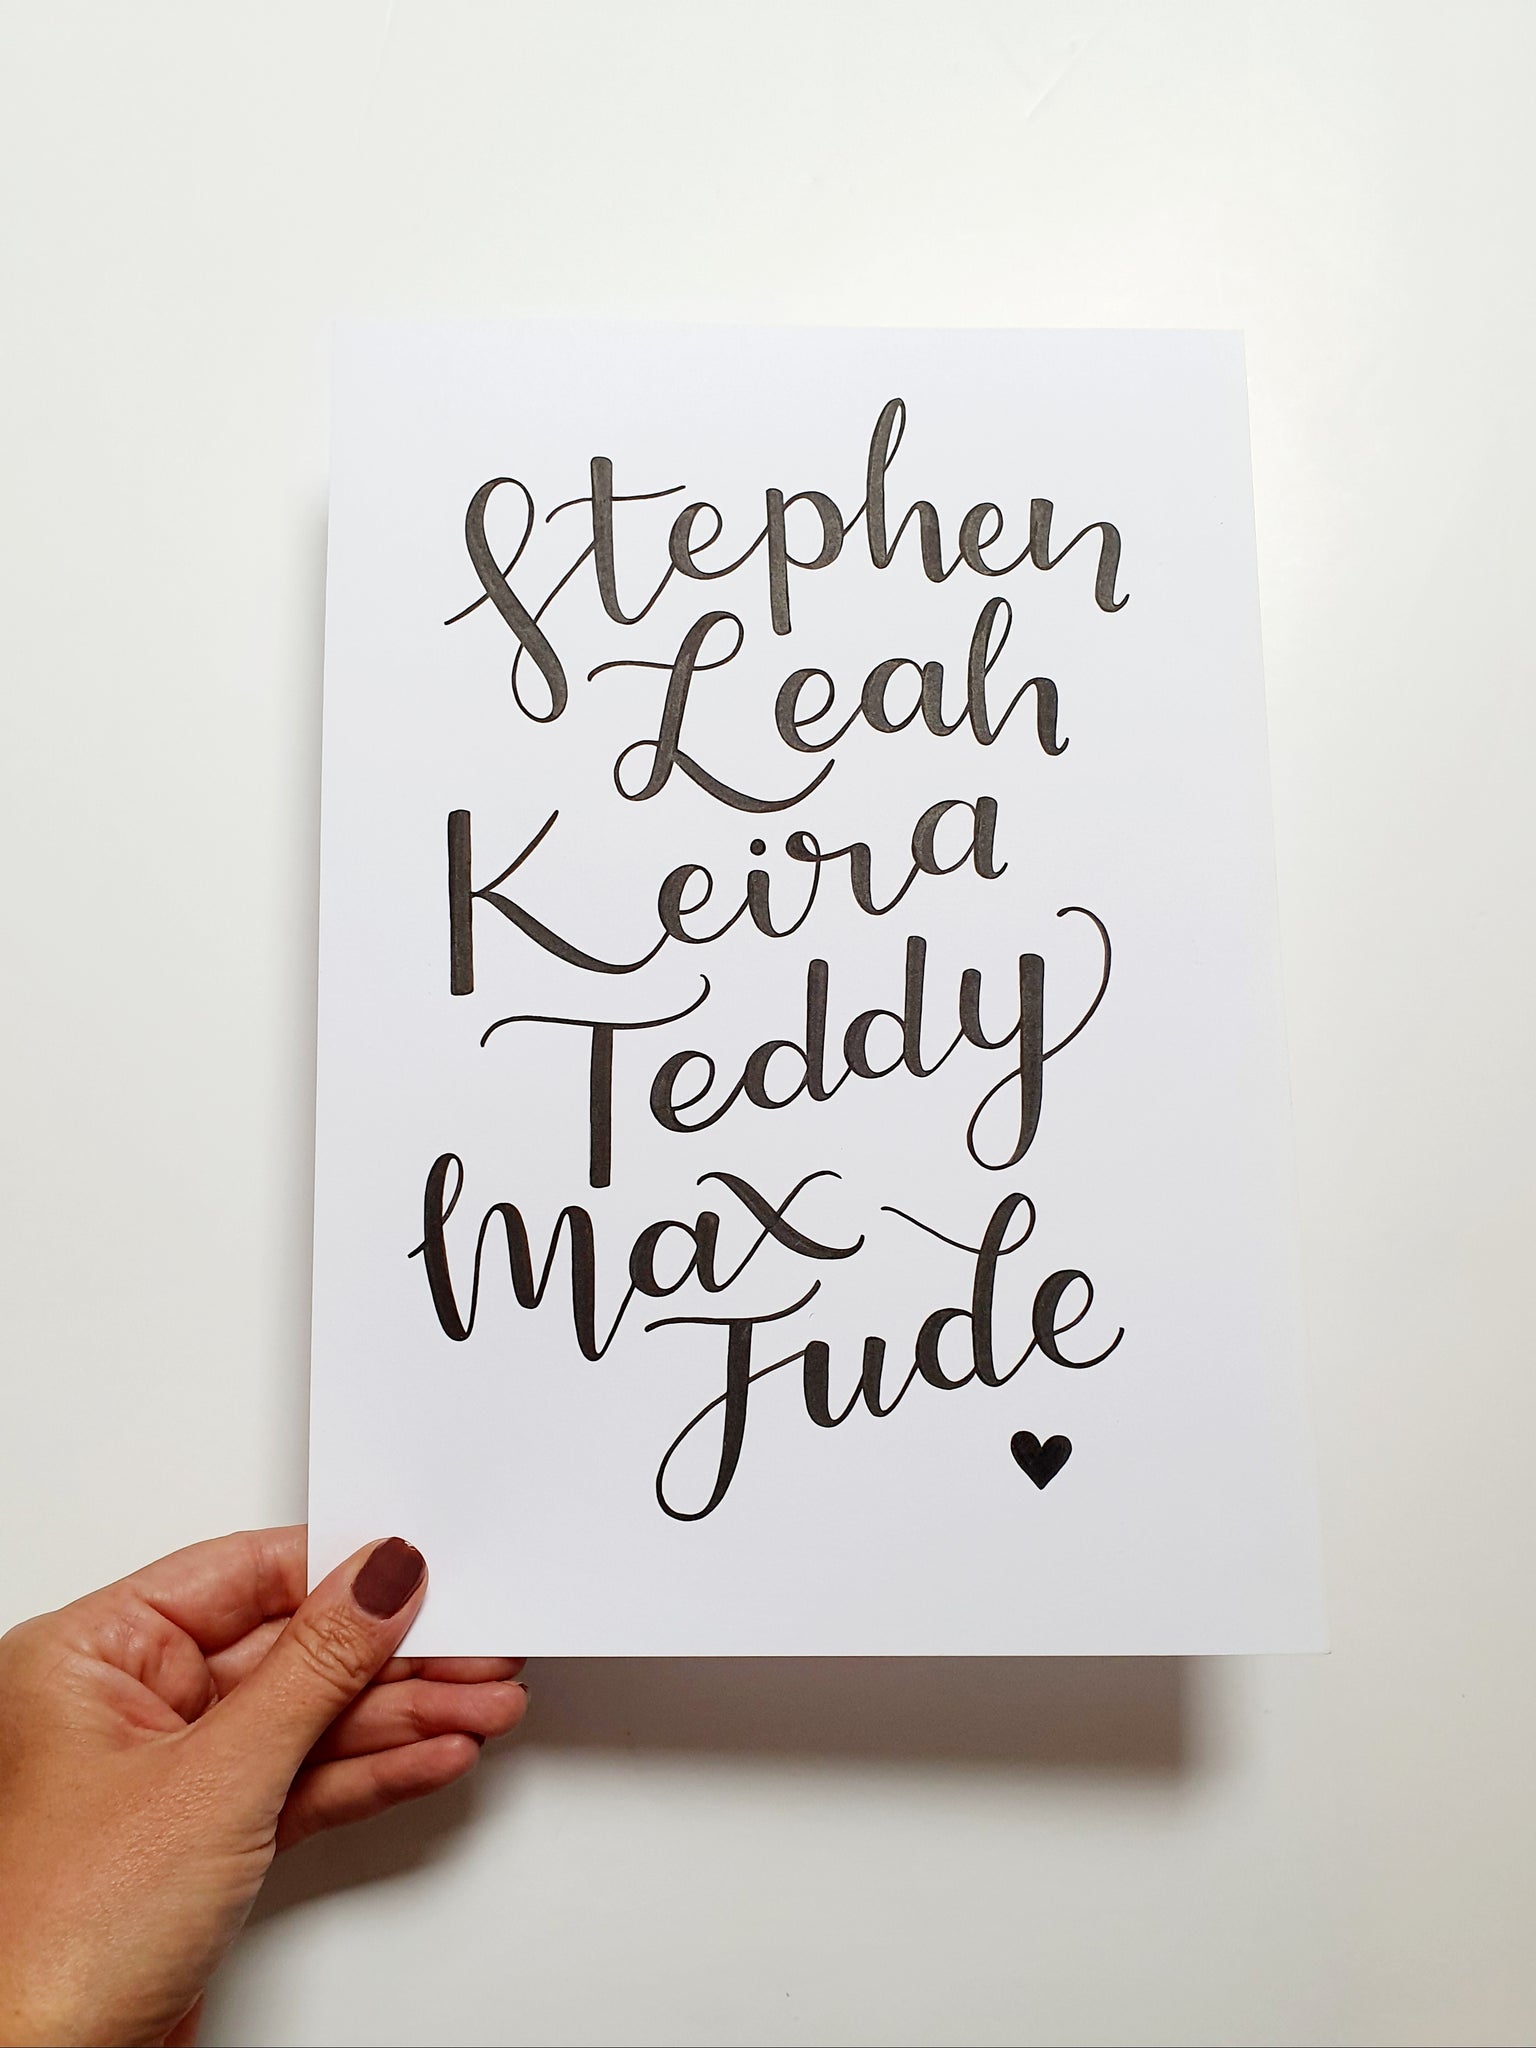 Stephen
Leah
Keira
Teddy
Max
Jude